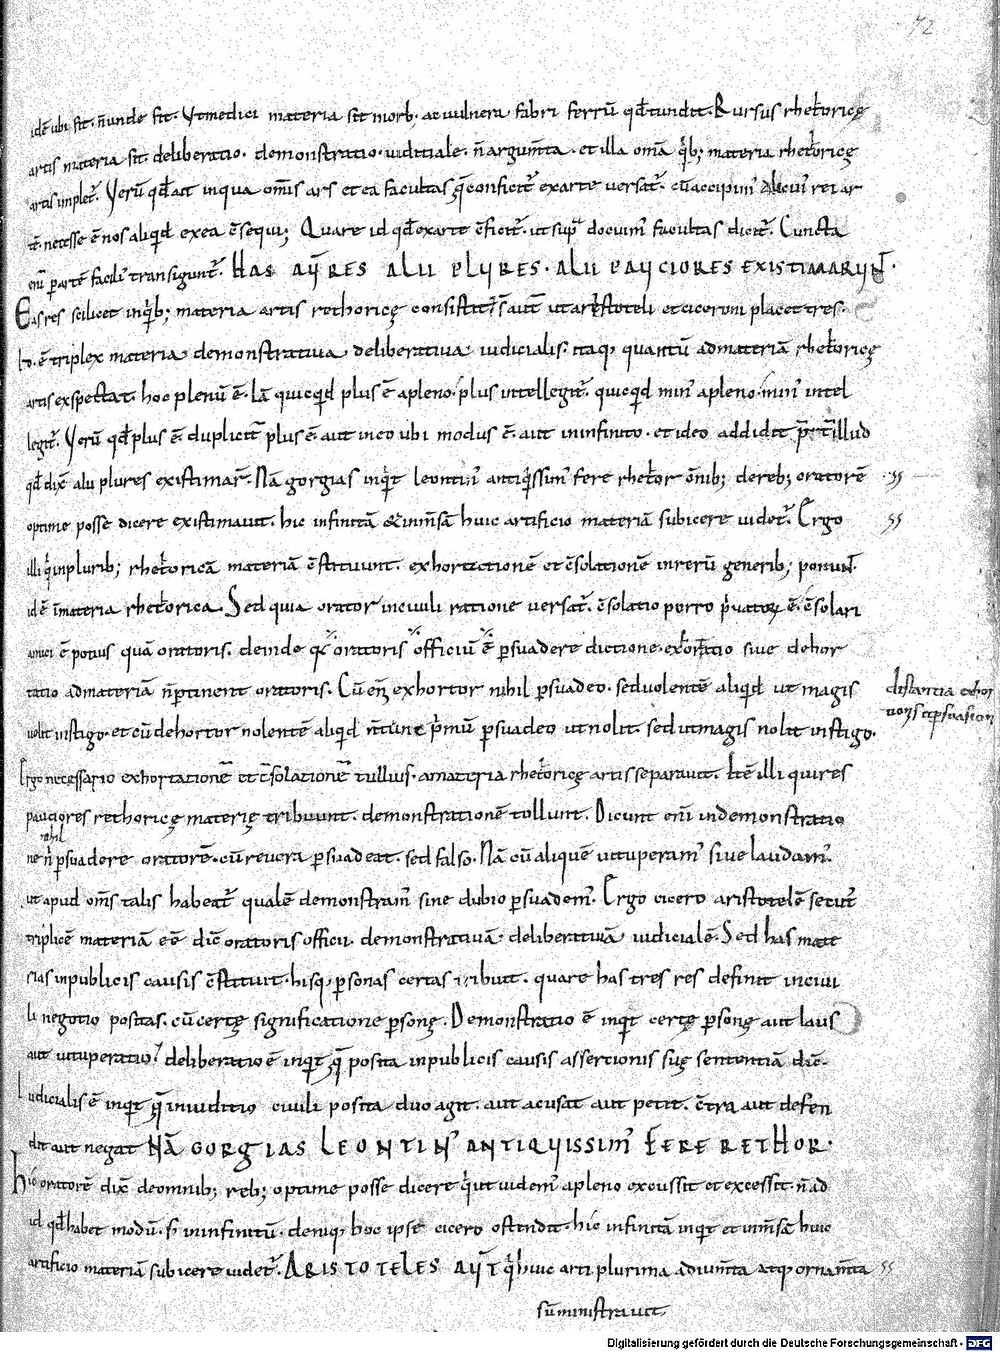 72
idē ubi sit. n̄ unde sit. Ut medici materia sit morb; ac uulnera fabri ferrū qd̄ tundit. Rursus rhetoricę
artis materia sit. deliberatio. demonstratio. iuditiale. n̄ argum̄ta. et illa om̄a q̄b; materia rhetoricę
artis implet̄. Verū qd̄ ait in qua om̄is ars et ea facultas q̄ conficit̄ ex arte versat̄. cū accipim' alicui' rei ar
tē. necesse ē nos aliqd̄ ex ea c̄sequi; Quare id qd̄ ex arte c̄ficit̄. ut sup̄ docuim' facultas dicit̄. Cuncta
eni p̄ partē facili' transigunt̄. HAS AUT̄ RES ALII PLURES. ALII PAUCIORES EXISTIMARUN̄T.
Eas res scilicet in q̄b; materia artis rethoricę consistit; s̄ aut ut aristoteli et ciceroni placet tres.
h. ē triplex materia demonstratiua deliberatiua iudicialis. itaq; quantū ad materiā rhetoricę
artis exspectat. hoc plenū ē. Nā quicqd̄ plus ē a pleno. plus intellegit̄. quicqd min' a pleno. min' intel
legit̄. Verū qd̄ plus ē. duplicit̄ plus ē. aut in eo ubi modus ē. aut in infinito. et ideo addidit p̄t̄ illud
qd̄ dix̄ alii plures existimar̄. Nā gorgias inq̄t leontin' antiq̄ssim' fere rhetor om̄ib; de reb; oratorē
optime posse dicere existimauit. hic infinitā & inm̄sā huic artificio materiā subicere uidet̄. Ergo
illi q̄ in plurib; rhetoricā materiā c̄stituunt. exhortationē et c̄solationē in rerū generib; ponunt̄.
idē in materia rhetorica. Sed quia orator in ciuili ratione versat̄. c̄solatio porro p̄uatorū ē. c̄solari
amici ē potius quā oratoris. deinde q̄ oratoris officiū ē p̄suadere dictione. exhortatio siue dehor
tatio ad materiā n̄ p̄tinent oratoris. Cū eni exhortor nihil p̄suadeo. sed uolentē aliqd̄ ut magis
uelit instigo. et cū dehortor nolentē aliqd̄ n̄ tunc p̄mū p̄suadeo ut nolit. sed ut magis nolit instigo.
distantia exhor
tonis et p̄suasion
Ergo necessario exhortationē et c̄solationē tullius. a materia rhetoricę artis separauit. Itē illi qui res
pauciores rethoricę materię tribuunt. demonstrationē tollunt. Dicunt eni in demonstratio
nihil
ne n̄ p̄suadere oratorē. cū reuera p̄suadeat. sed falso. Nā cū aliquē uituperam' siue laudam'.
ut apud om̄s talis habeat̄ qualē demonstram' sine dubio p̄suadem'. Ergo cicero aristotelē secut'
triplicē materiā eē dic̄ oratoris officii. demonstratiuā. deliberatiuā iudicialē. Sed has mate
rias in publicis causis c̄stituit. hisq; p̄sonas certas tribuit. quare has tres res definit in ciui
li negotio positas. cū certę significatione p̄sonę. Demonstratio ē inqt̄ certę p̄sonę aut laus
aut uituperatio; deliberatio ē inqt̄ q̄ posita in publicis causis assertionis suę sententiā dic̄.
Iudicialis ē inqt̄ q̄ in iuditio ciuili posita duo agit. aut acusat aut petit. c̄tra aut defen
dit aut negat NĀ GORGIAS LEONTIN' ANTIQUISSIM' FERE RETHOR.
hic oratorē dix̄ de omnib; reb; optime posse dicere q̄ ut uidem' a pleno excussit et excessit. n̄ ad
id qd̄ habet modū. s; in infinitū. deniq; hoc ipse cicero ostendit. hic infinitā inqt̄ et inm̄sā huic
artificio materiā subicere uidet̄. ARISTOTELES AUT̄ q̄ huic arti plurima adium̄ta atq; ornam̄ta
sūministrauit.
Digitalisierung gefördert durch die Deutsche Forschungsgemeinschaft - DFG